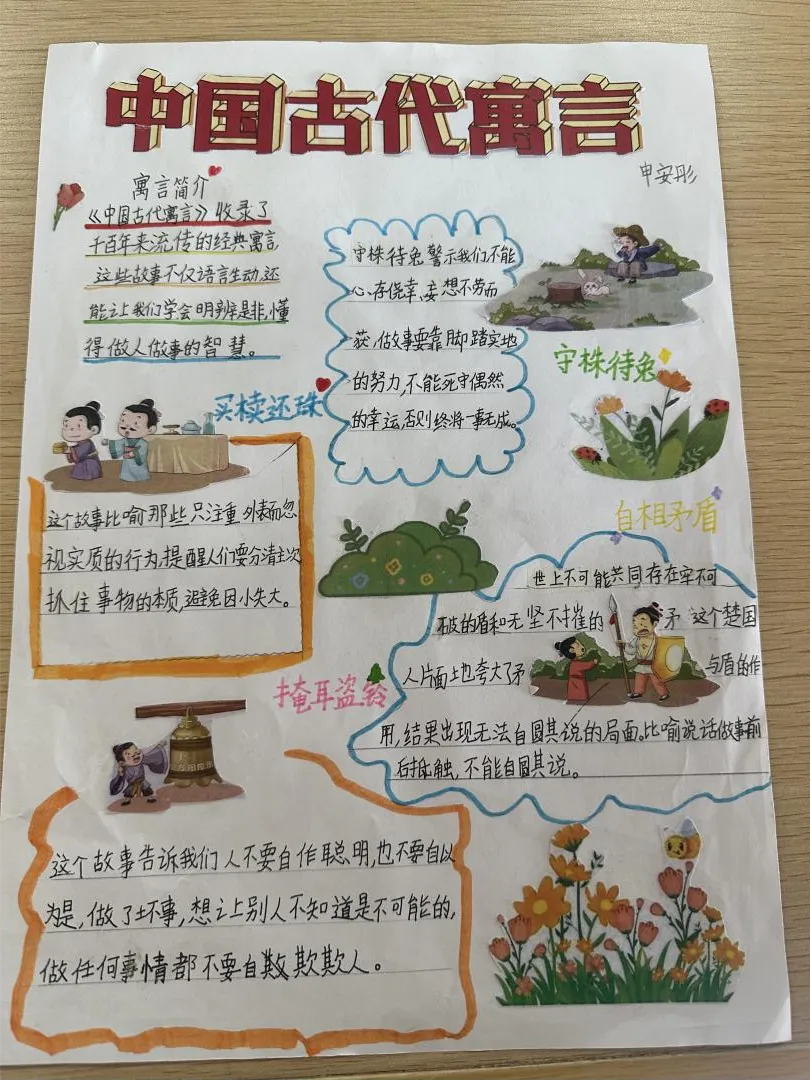 中国古代寓言
申安彤
寓言简介
《中国古代寓言》收录了
千百年来流传的经典寓言,
这些故事不仅语言生动,还
能让我们学会明辨是非,懂
得做人做事的智慧。
守株待兔警示我们不能
心存侥幸,妄想不劳而
获,做故事要靠脚踏实地
的努力,不能死守偶然
的幸运,否则终将一事无成。
守株待兔
买椟还珠
这个故事比喻那些只注重外表而忽
视实质的行为,提醒人们要分清主次
抓住事物的本质,避免因小失大。
自相矛盾
世上不可能共同存在牢不可
破的盾和无坚不摧的矛 这个楚国
人片面上也夸大了矛与盾的作
用,结果出现无法自圆其说的局面。比喻说话做事前
后抵触,不能自圆其说。
掩耳盗铃
这个故事告诉我们人不要自作聪明,也不要自以
为是,做了坏事,想让别人不知道是不可能的,
做任何事情都不要自欺欺人。